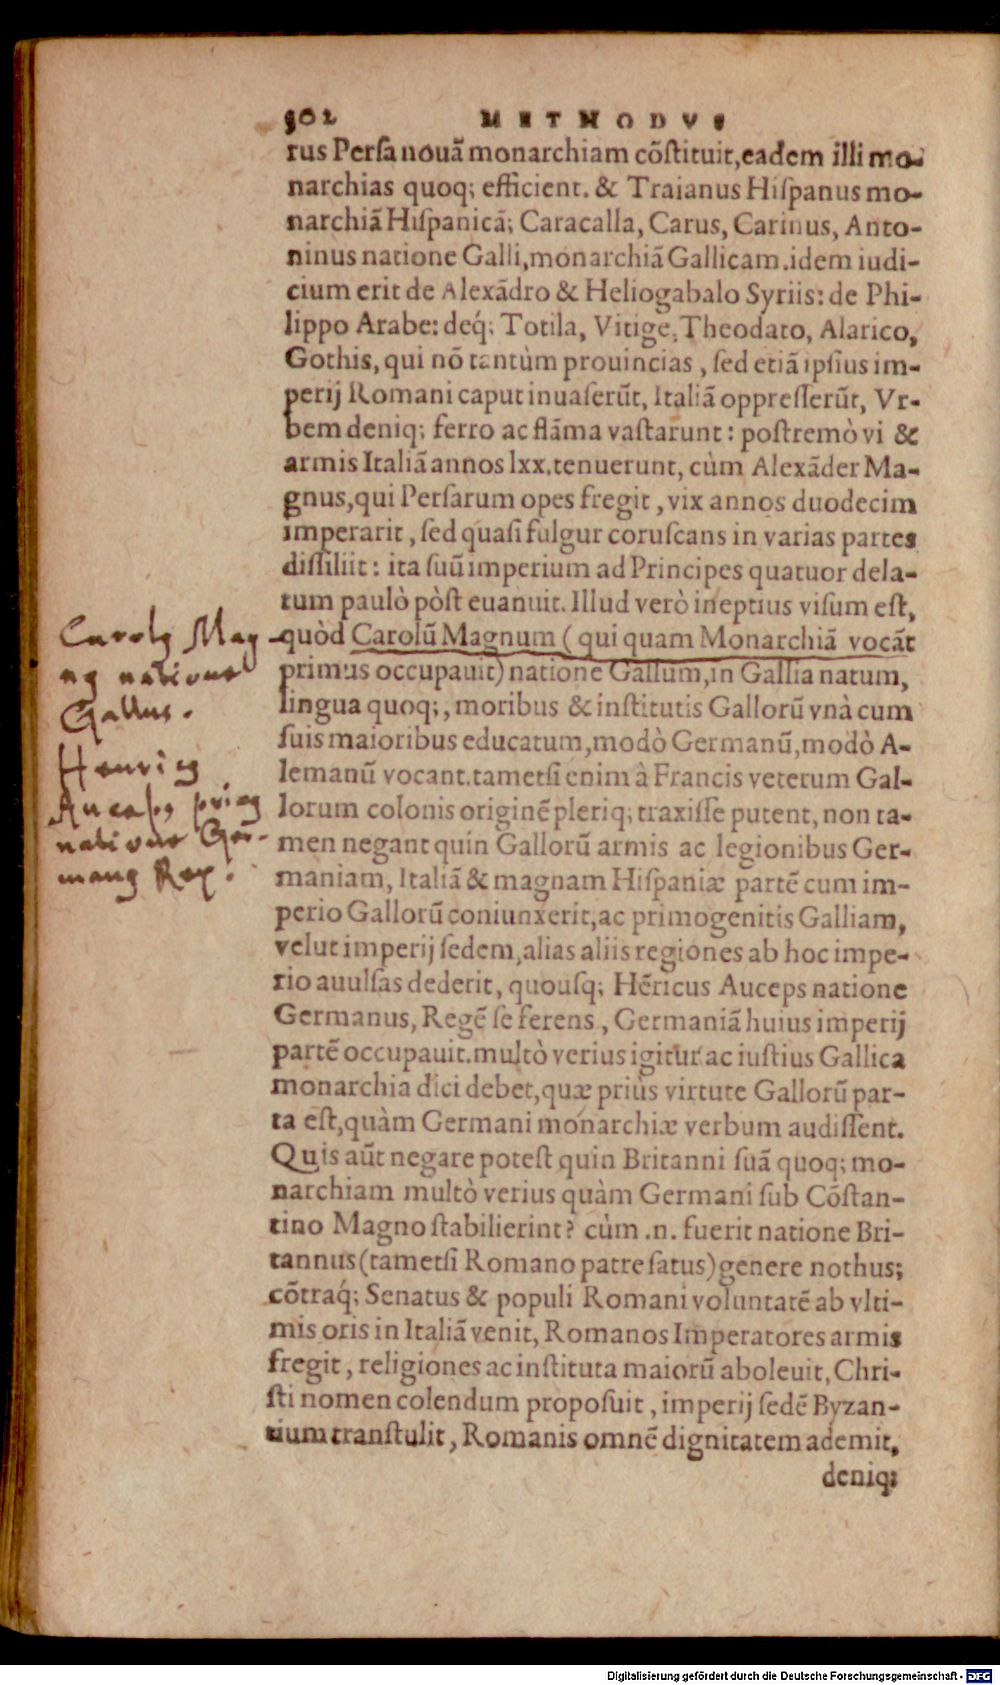 302 METHODVS
rus Persa nouã monarchiam cõstituit, eadem illi mo-
narchias quoq; efficient. & Traianus Hispanus mo-
narchiã Hispanicã; Caracalla, Carus, Carinus, Anto-
ninus natione Galli, monarchiã Gallicam. idem iudi-
cium erit de Alexãdro & Heliogabalo Syriis: de Phi-
lippo Arabe: deq́; Totila, Vitige, Theodato, Alarico,
Gothis, qui nõ tantùm prouincias, sed etiã ipsius im-
perij Romani caput inuaserũt, Italiã oppresserũt, Vr-
bem deniq; ferro ac flãma vastarunt: postremò vi &
armis Italiã annos lxx. tenuerunt, cùm Alexãder Ma-
gnus, qui Persarum opes fregit, vix annos duodecim
imperarit, sed quasi fulgur coruscans in varias partes
dissiliit: ita suũ imperium ad Principes quatuor dela-
tum paulò pòst euanuit. Illud verò ineptius visum est,
quòd Carolũ Magnum (qui quam Monarchiã vocãt
primus occupauit) natione Gallum, in Gallia natum,
lingua quoq;, moribus & institutis Gallorũ vnà cum
suis maioribus educatum, modò Germanũ, modò A-
lemanũ vocant. tametsi enim à Francis veterum Gal-
lorum colonis originẽ pleriq; traxisse putent, non ta-
men negant quin Gallorũ armis ac legionibus Ger-
maniam, Italiã & magnam Hispaniæ partẽ cum im-
perio Gallorũ coniunxerit, ac primogenitis Galliam,
velut imperij sedem, alias aliis regiones ab hoc impe-
rio auulsas dederit, quousq; Hẽricus Auceps natione
Germanus, Regẽ se ferens, Germaniã huius imperij
partẽ occupauit. multò verius igitur ac iustius Gallica
monarchia dici debet, quæ priùs virtute Gallorũ par-
ta est, quàm Germani monarchiæ verbum audissent.
Quis aũt negare potest quin Britanni suã quoq; mo-
narchiam multò verius quàm Germani sub Cõstan-
tino Magno stabilierint? cùm .n. fuerit natione Bri-
tannus (tametsi Romano patre satus) genere nothus;
cõtraq́; Senatus & populi Romani voluntatẽ ab vlti-
mis oris in Italiã venit, Romanos Imperatores armis
fregit, religiones ac instituta maiorũ aboleuit, Chri-
sti nomen colendum proposuit, imperij sedẽ Byzan-
tium transtulit, Romanis omnẽ dignitatem ademit,
deniq;
Carolꝰ Mag-
nꝰ natione
Gallus.
Henricꝰ
Auceps primꝰ
natione Ger-
manꝰ Rex.
Digitalisierung gefördert durch die Deutsche Forschungsgemeinschaft - DFG